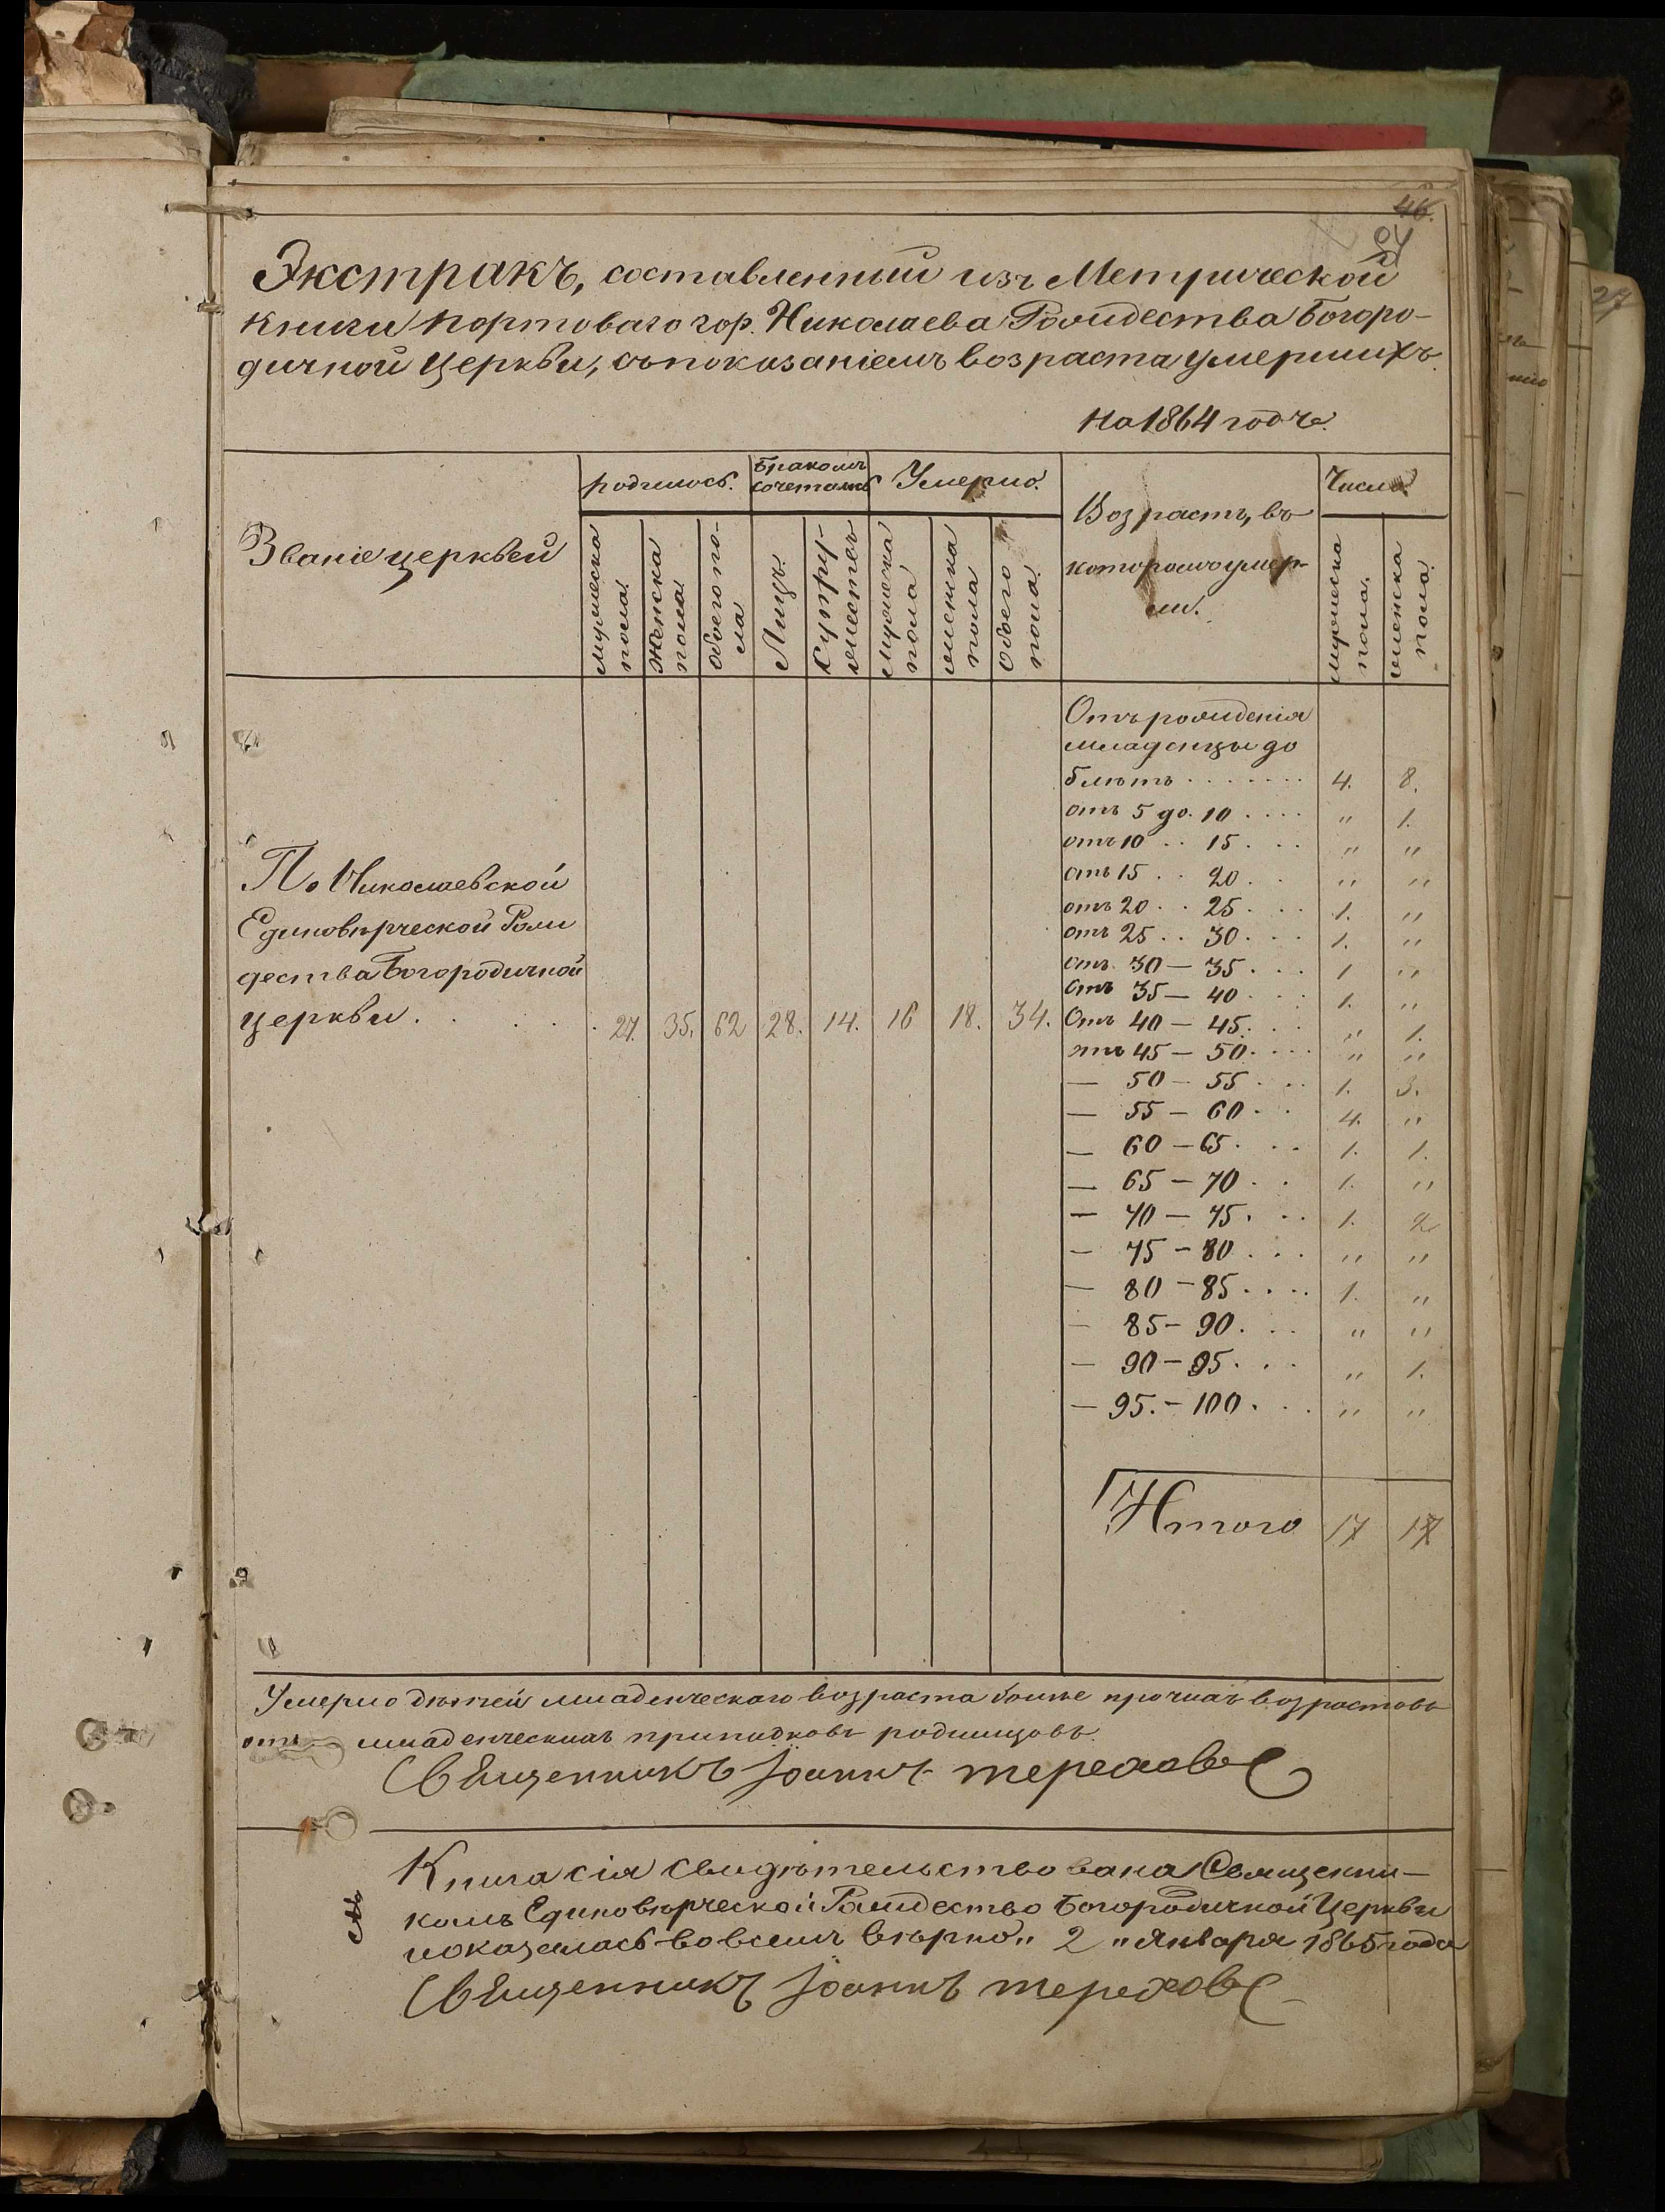 46.
24
Экстракъ, составленный изъ Метрической
книги портоваго гор. Николаева Рождества Богоро-
дичной церкви, съ показаніемъ возраста умершихъ.
на 1864 годъ.
Званіе церквей
родилось.
Бракомъ
сочетались
Умерло.
Возрастъ, въ
которомъ умер-
ли.
Число
мужеска
пола
женска
пола
обоего по-
ла
Лицъ.
Супру-
жествъ
мужеска
пола
женска
пола
обоего
пола.
мужеска
пола.
женска
пола.
Отъ рожденія
младенцы до
5 лѣтъ . . . . . . . 4. 8.
отъ 5 до. 10 . . . . " 1.
отъ 10 . . 15 . . . " "
отъ 15 . . 20 . . " "
отъ 20 . . 25 . . . 1. "
отъ 25 . . 30 . . . 1. "
отъ 30 — 35 . . . 1 "
отъ 35 — 40 . . . 1. "
По Николаевской
Единовѣрческой Рож
дества Богородичной
церкви . . . . . 27. 35. 62 28. 14. 16 18. 34.
Отъ 40 — 45 . . . " 1.
отъ 45 — 50 . . . . " "
— 50 — 55 . . . 1. 3.
— 55 — 60 . . 4. "
— 60 — 65 . . . 1. 1.
— 65 — 70 . . 1. "
— 70 — 75 . . . 1. 2
— 75 — 80 . . . " "
— 80 — 85 . . . . 1. "
— 85 — 90 . . . " "
— 90 — 95 . . . " 1.
— 95. — 100 . . . " "
Итого 17 17
Умерло дѣтей младенческаго возраста болѣе прочихъ возрастовъ
отъ — младенческихъ припадковъ родимцовъ.
Священникъ Іоаннъ Тереховъ
Книга сія свидѣтельствована Священни-
комъ Единовѣрческой Рождество Богородичной Церкви
и оказалась во всемъ вѣрно „ 2 „ Января 1865 года
Священникъ Іоаннъ Тереховъ